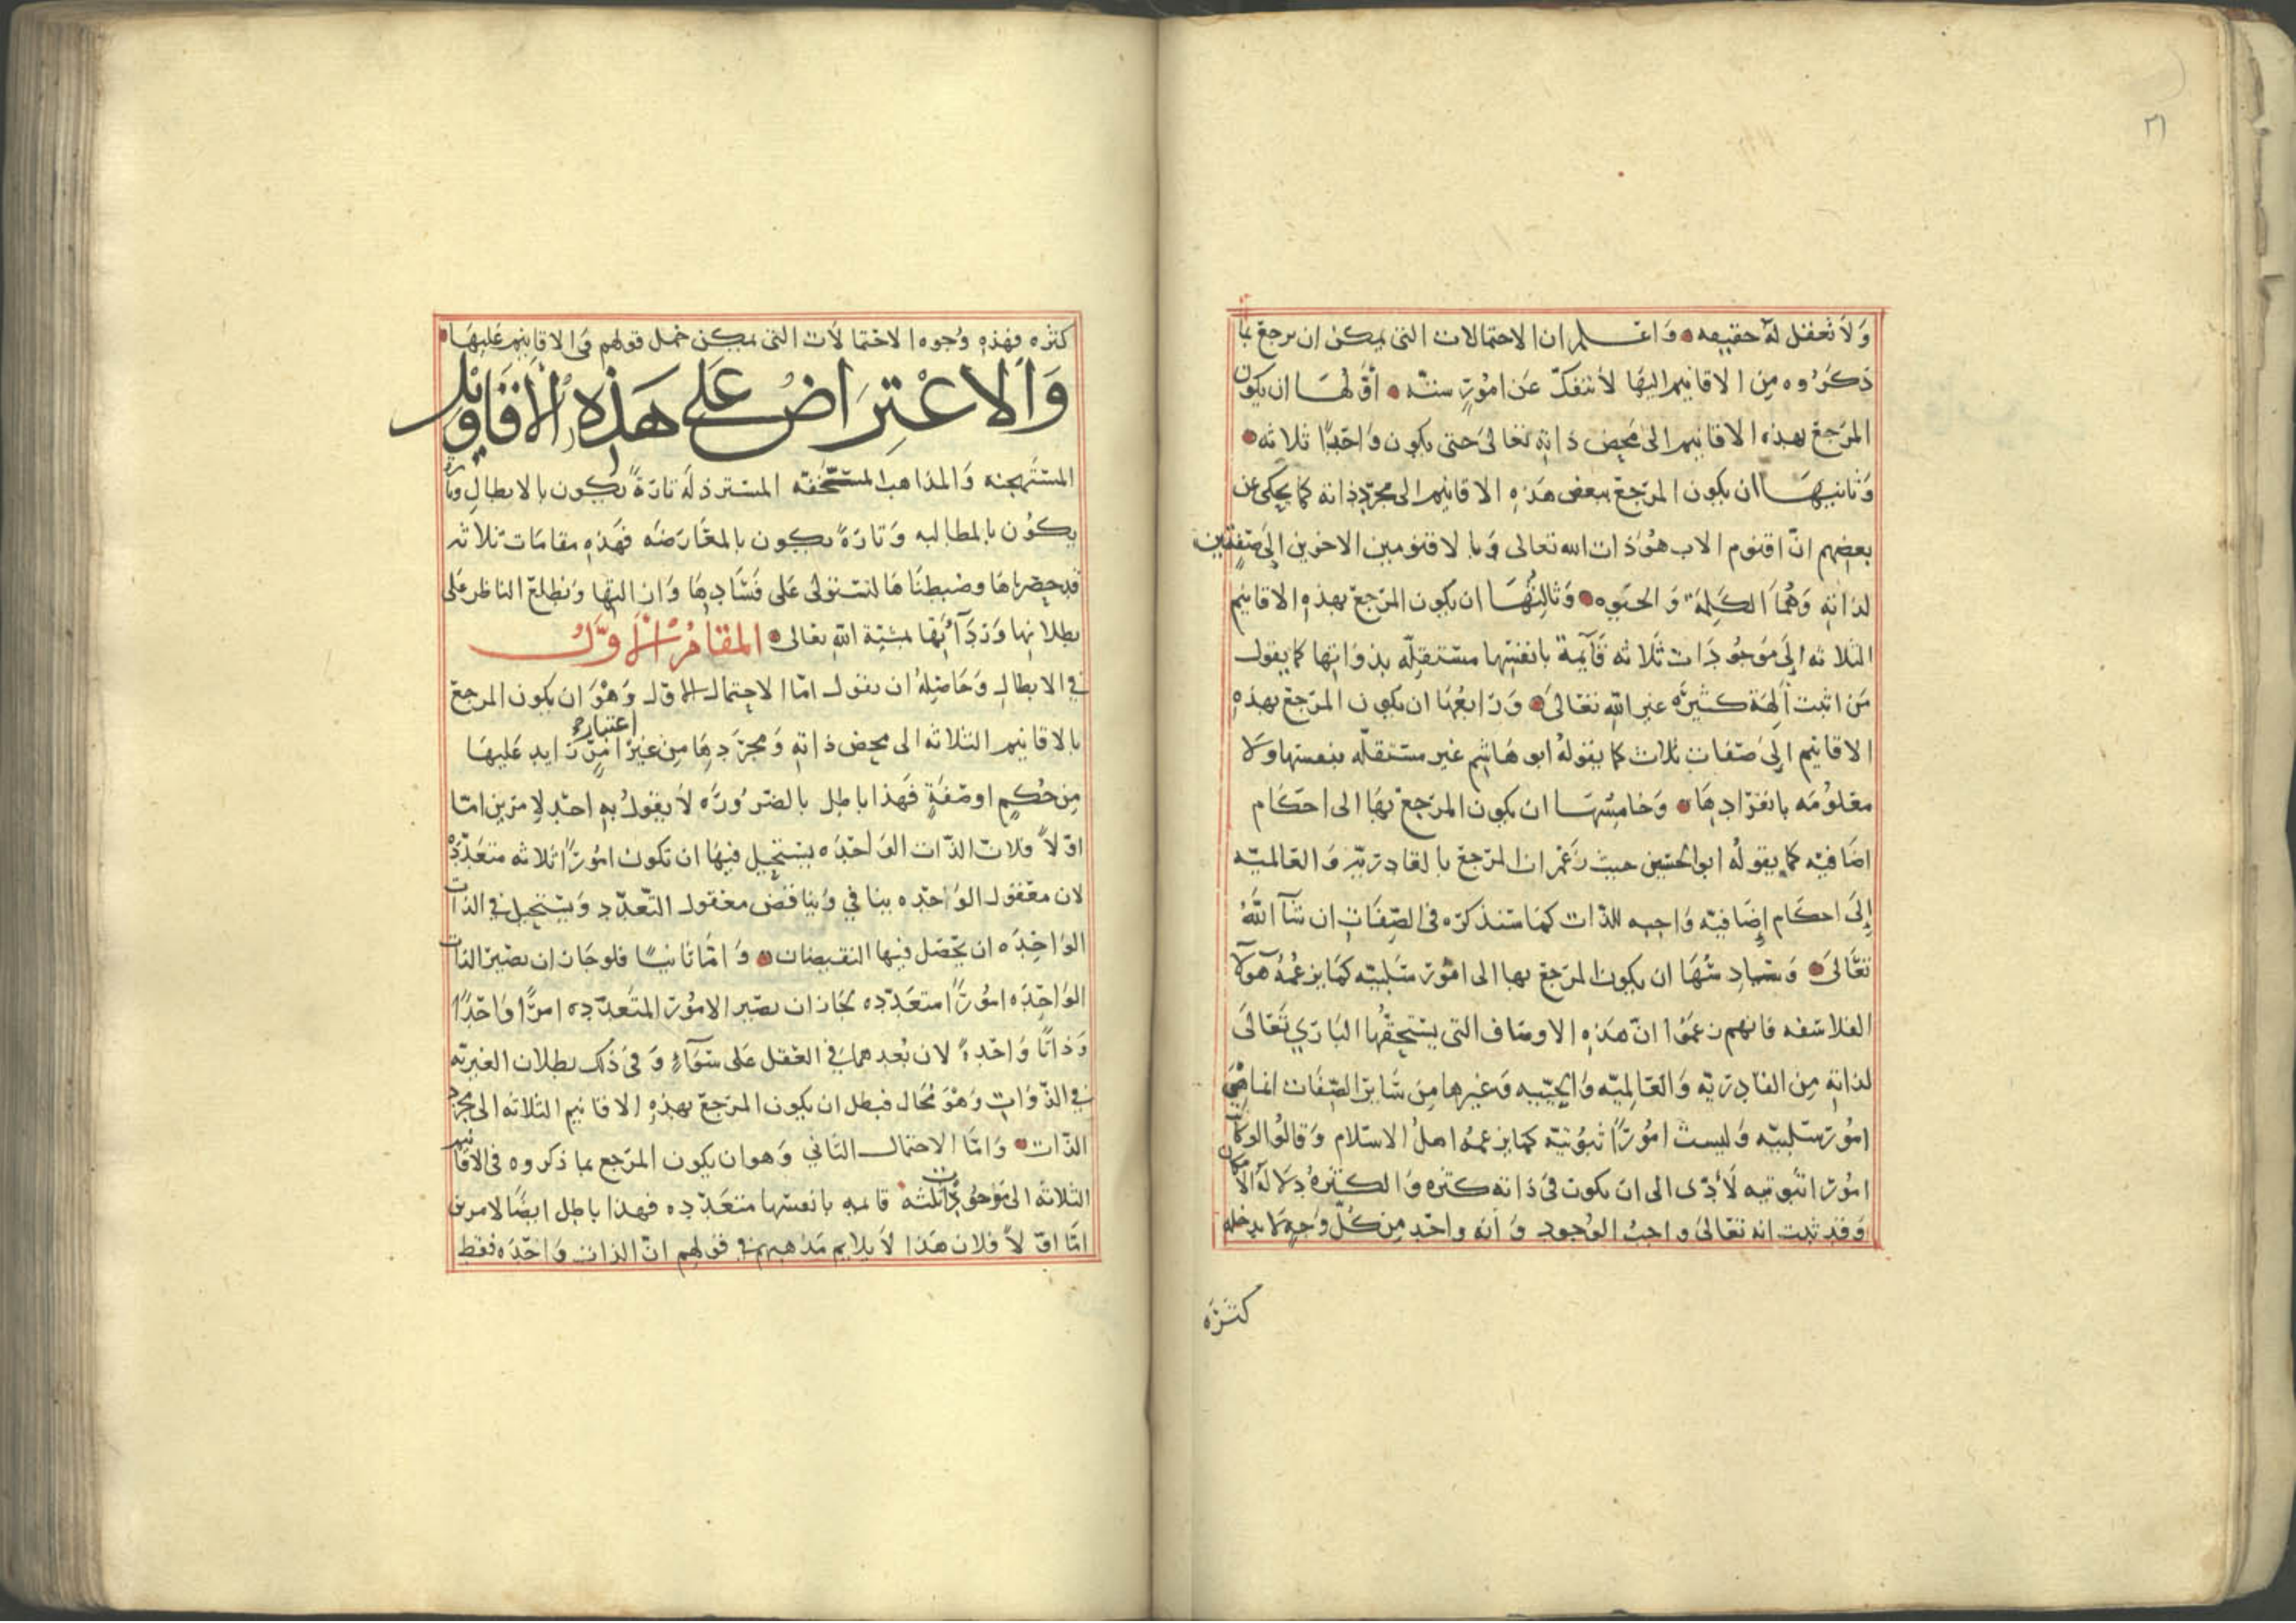 ٣١
ولا تعقل له حقيقه واعلم ان الاحتمالات التى يمكن ان يرجع بما
ذكروه من الاقانيم اليها لا تنفك عن امور سته اولها ان يكون
المرجع بهذه الاقانيم الى محض ذاته تعالى حتى يكون واحدًا ثلاثه
وثانيها ان يكون المرجع ببعض هذه الاقانيم الى مجرد ذاته كما يحكى عن
بعضهم انّ اقنوم الاب هو ذات الله تعالى وبالاقنومين الاخرين إلى صفتين
لذاته وهما الكلمة والحيوه وثالثها ان يكون المرجع بهذه الاقانيم
الثلاثه إلى موجودات ثلاثه قآيمة بانفسها مستقلّه بذواتها كما يقول
من اثبت ألهة كثيره غير الله تعالى ورابعها ان يكون المرجع بهذه
الاقانيم إلى صفات ثلاث كما يقوله ابو هاشم غير مستقلّه بنفسها ولا
معلومه بانفرادها وخامسها ان يكون المرجع بها الى احكام
اضافيه كما يقوله ابو الحسين حيث زعم ان المرجع بالقادريّه والعالميّه
إلى احكام إضافيّه واجبه للذّات كما سنذكره فى الصّفات ان شآ اللّه
تعالى وسادسها ان يكون المرجع بها الى امور سلبيّه كما يزعمه هولآ
الفلاسفه فانهم زعموا انّ هذه الاوصاف التى يستحقها البارى تعالى
لذاته من القادريّه والعالميّه والحيّيه وغيرها من ساير الصّفات انما هى
امور سلبيّه وليست امورًا ثبوتيّه كما يزعمه اهل الاسلام وقالوا لو كانت
امورا ثبوتيه لأدّى الى ان يكون فى ذاته كثره والكثرة دلالة الامكان
وقد ثبت انه تعالى واجب الوجود وأنه واحد من كلّ وجه لا يدخله
كثره
كثره فهذه وجوه الاحتمالات التى يمكن حمل قولهم فى الاقانيم عليها
والاعتراض على هذه الأقاويل
المستهجنه والمذاهب المستسخفه المسترذله تارةً يكون بالابطال وتاره
يكون بالمطالبه وتارةً يكون بالمعارضه فهذه مقامات ثلاثه
قد حصرناها وضبطناها لنستولى على فسادها وان التها ونطلع الناظر على
بطلانها وتدآيها بمشيّة الله تعالى المقام الأول
في الابطال وحاصله ان نقول امّا الاحتمال الاوّل وهو ان يكون المرجع
بالاقانيم الثلاثه الى محض ذاته ومجردها من غير اعتبار امر زايد عليها
من حكم او صفة فهذا باطل بالضروره لا يقول به احد لامرين امّا
اوّلاً فلان الذّات الواحده يستحيل فيها ان تكون امورًا ثلاثه متعدّده
لان معقول الواحده ينافي ويناقض معقول التعدّد ويستحيل في الذات
الواحده ان يحصل فيها النقيضان وامّا ثانيًا فلو جاز ان تصير الذات
الواحده امورًا متعدّده لجاز ان تصير الامور المتعدّده امرًا واحدًا
وذاتًا واحدةً لان بُعدهما في العقل على سوآء وفى ذلك بطلان الغيريّه
في الذّوات وهو محال فبطل ان يكون المرجع بهذه الاقانيم الثلاثه الى مجرد
الذّات وامّا الاحتمال الثاني وهو ان يكون المرجع بما ذكروه فى الاقانيم
الثلاثه الى موجودات ثلثه قايمه بانفسها متعدّده فهذا باطل ايضًا لامرين
امّا اوّلاً فلان هذا لا يلايم مذهبهم فى قولهم انّ الذات واحده فقط